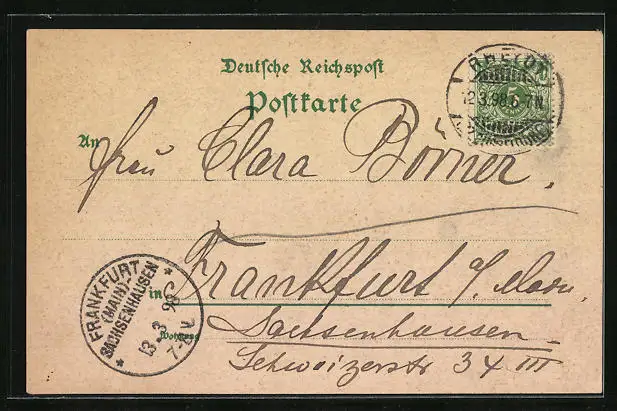 Deutsche Reichspost
Postkarte
RHEYDT
12.3.98.6-7N.
5
An Frau Clara Börner.
in Frankfurt a/Main
Sachsenhausen
Wohnung
Schweizerstr 34 III
FRANKFURT
(MAIN)-
SACHSENHAUSEN
13 3 98
7-8V